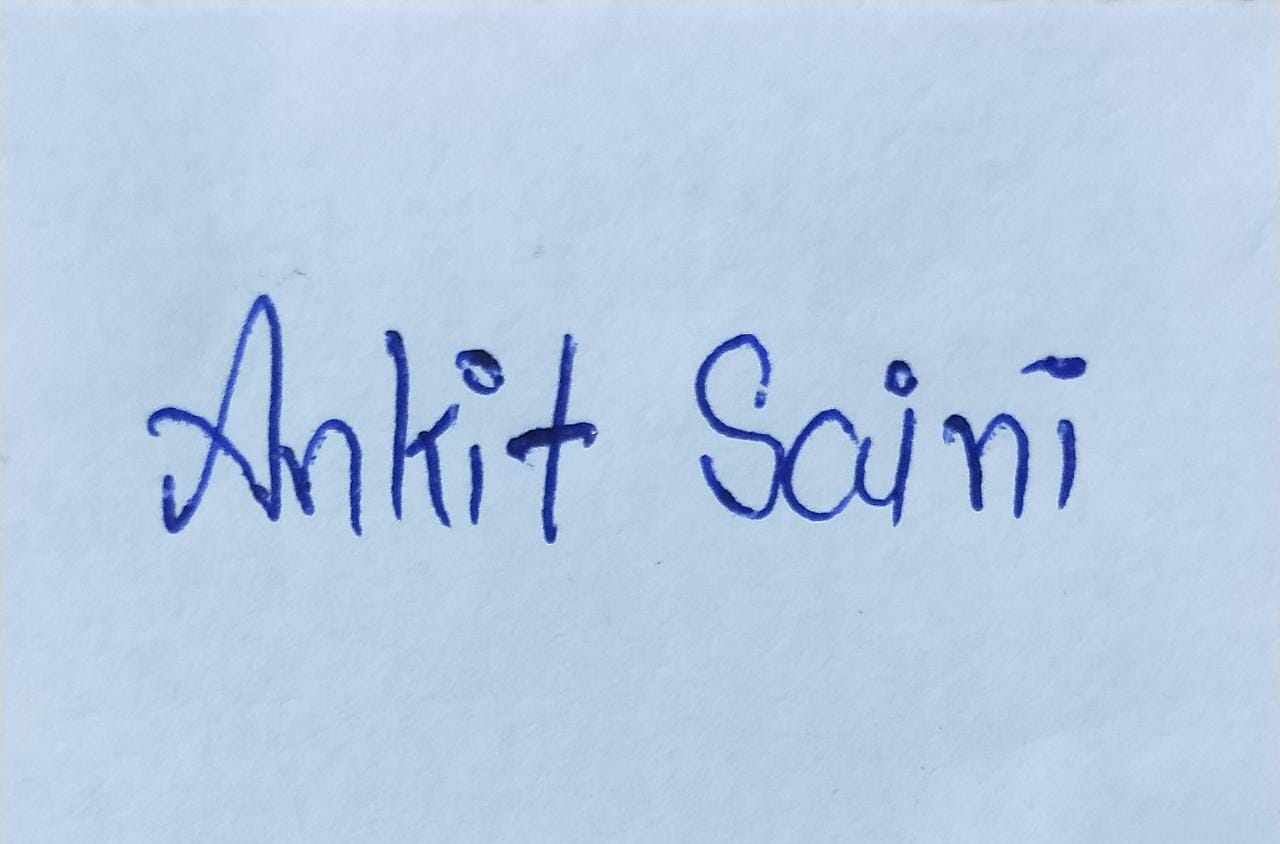 Ankit Saini